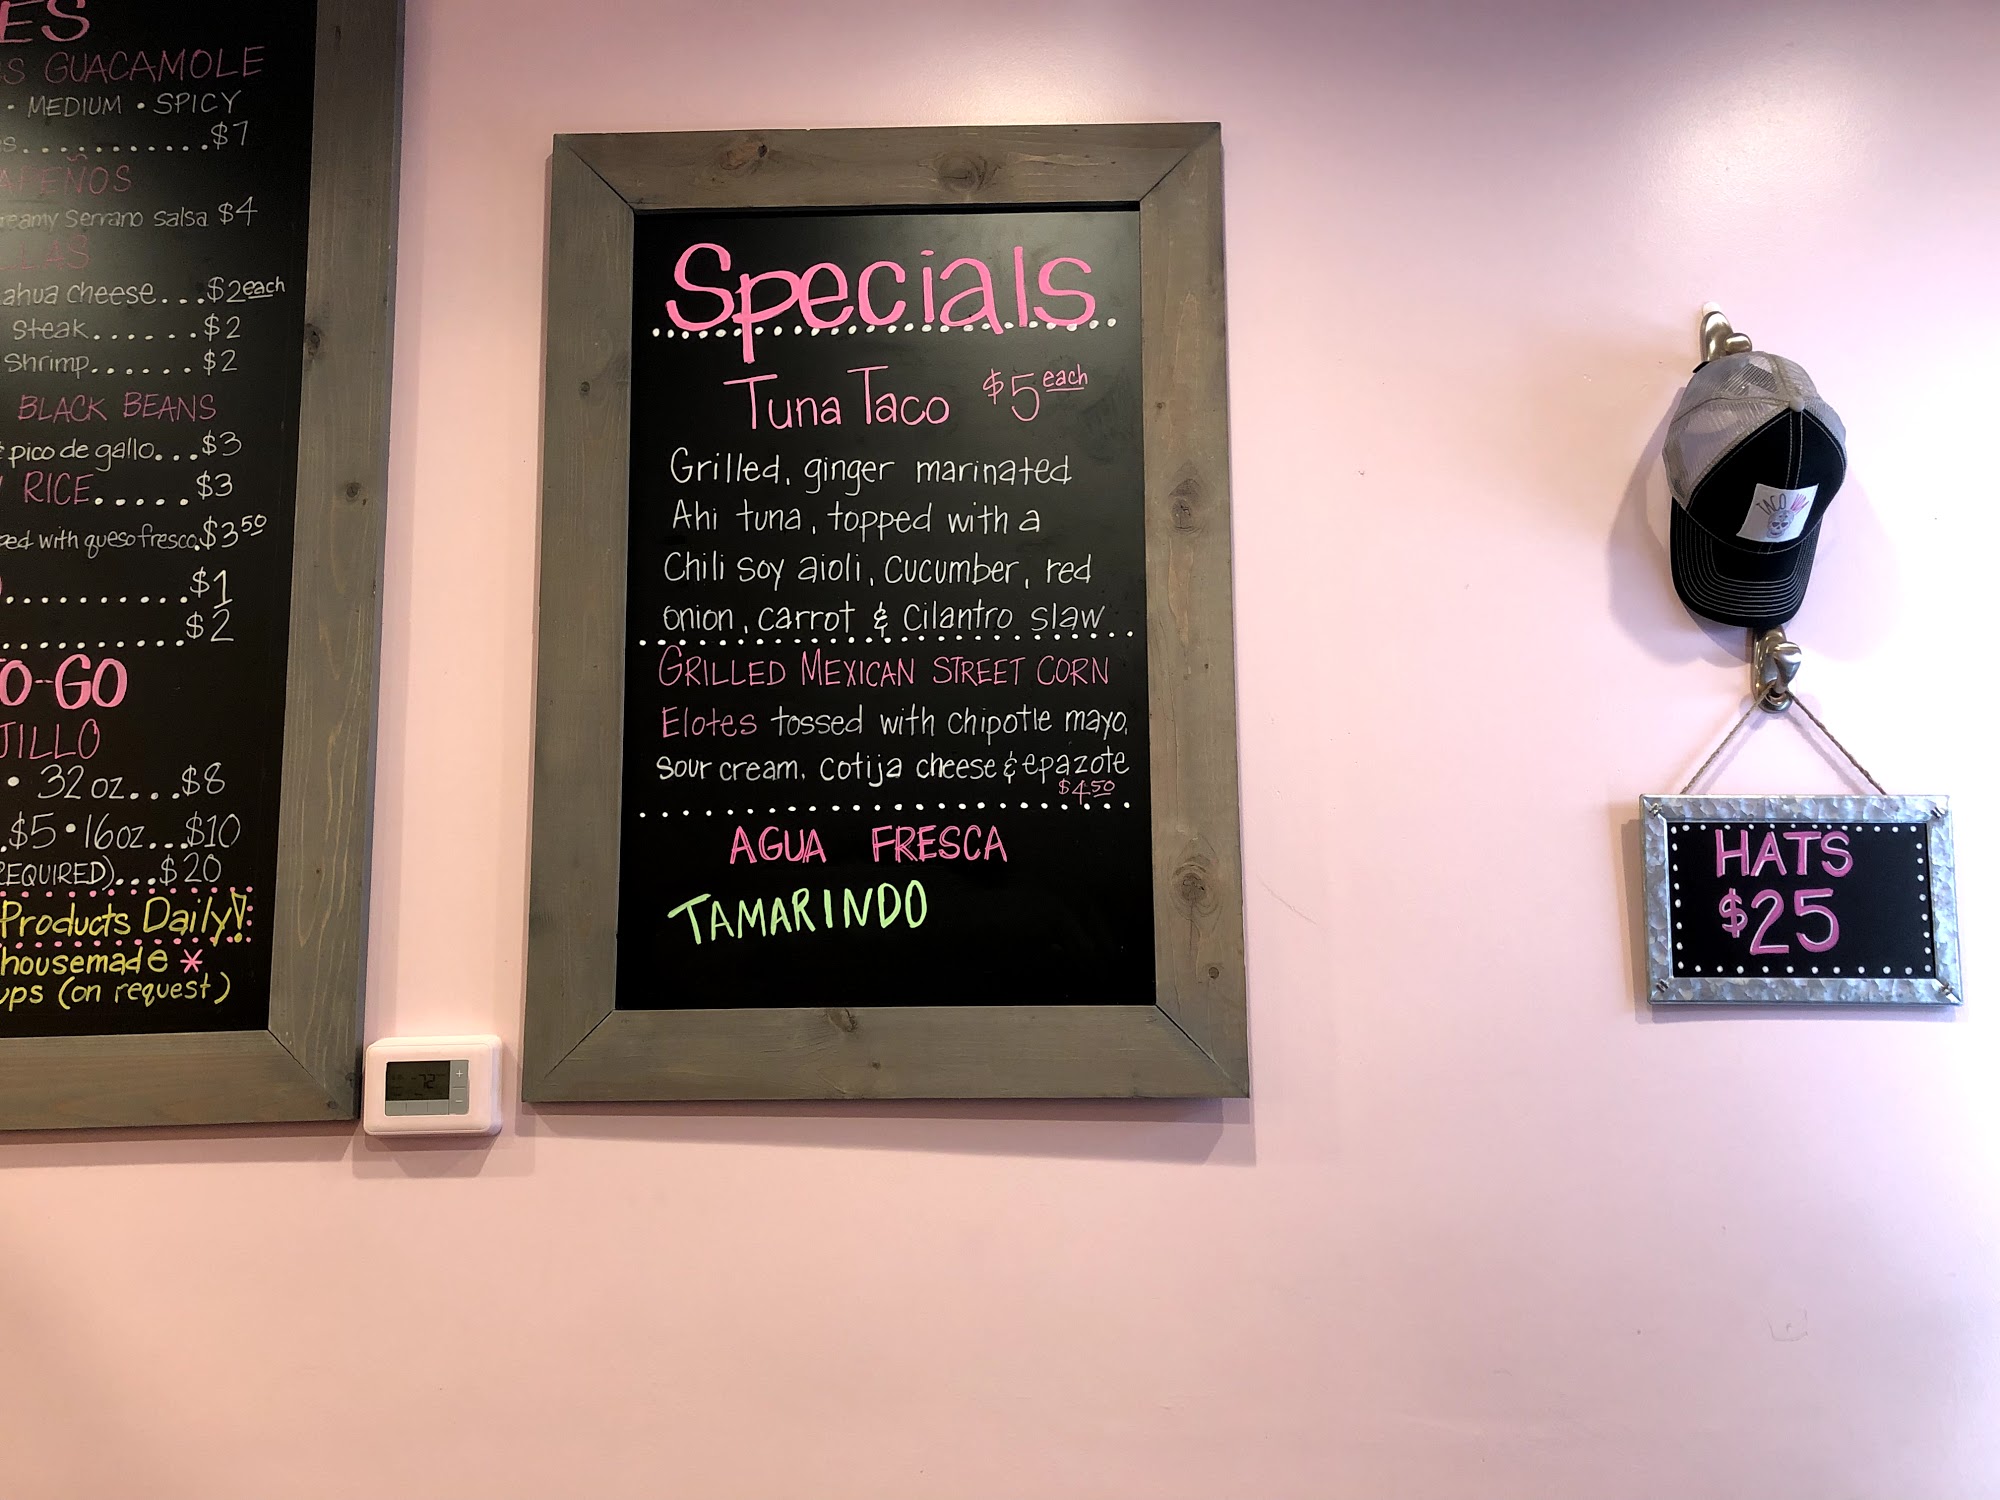 ES
GUACAMOLE
• MEDIUM • SPICY
...........$7
eamy Serrano salsa $4
LLAS
ahua cheese...$2 each
Steak.......$2
Shrimp......$2
BLACK BEANS
pico de gallo...$3
RICE.....$3
ed with queso fresco.$3 50
..........$1
...........$2
O-GO
JILLO
• 32 oz...$8
.$5 • 16oz...$10
EQUIRED)...$20
Products Daily!
housemade *
ups (on request)
72
Specials
Tuna Taco $5 each
Grilled, ginger marinated
Ahi tuna, topped with a
Chili soy aioli, Cucumber, red
onion, carrot & Cilantro slaw
GRILLED MEXICAN STREET CORN
Elotes tossed with chipotle mayo,
sour cream, cotija cheese & epazote
$4.50
AGUA FRESCA
TAMARINDO
TACO
HATS
$25